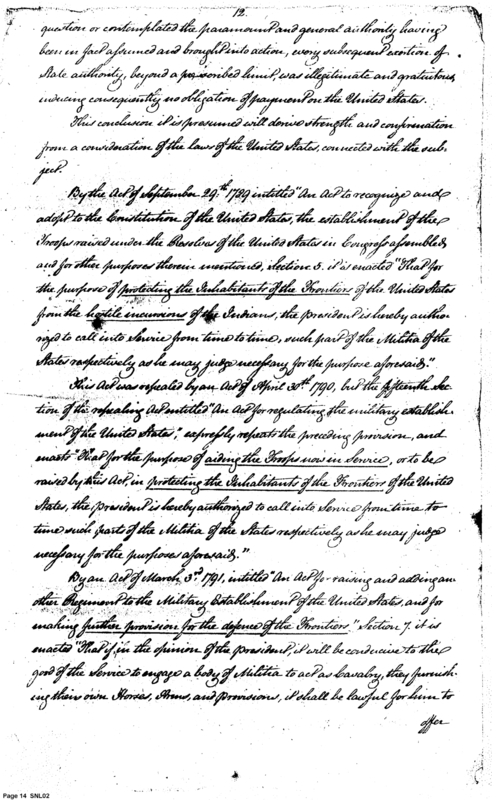 12.
question or contemplated the paramount and general authority having
been in fact assumed and brought into action, every subsequent exertion of
State authority, beyond a prescribed limit, was illegitimate and gratuitous,
inducing consequently no obligation of payment on the United States.
This conclusion it is presumed will derive strength and confirmation
from a consideration of the laws of the United States, connected with the sub-
ject.
By the Act of September 29.th 1789 intitled "An Act to recognize and
adapt to the Constitution of the United States, the establishment of the
Troops raised under the Resolves of the United States in Congress assembled,
and for other purposes therein mentioned, section 5. it is enacted "That for
the purpose of protecting the Inhabitants of the Frontiers of the United States
from the hostile incursions of the Indians, the president is hereby autho-
rized to call into Service from time to time, such part of the Militia of the
States respectively as he may judge necessary for the purpose aforesaid."
This Act was repealed by an Act of April 30th 1790, but the fifteenth Sec-
tion of the repealing Act intitled "An Act for regulating the military establish-
ment of the United States," expressly repeats the preceding provision, and
enacts "That for the purpose of aiding the Troops now in Service, or to be
raised by this Act, in protecting the Inhabitants of the Frontiers of the United
States, the President is hereby authorized to call into Service from time to
time such parts of the Militia of the States respectively as he may judge
necessary for the purposes aforesaid."
By an Act of March 3.rd 1791, intitled "An Act for raising and adding an-
other Regiment to the Military Establishment of the United States, and for
making further provision for the defence of the Frontiers," Section 7. it is
enacted "That if in the opinion of the president, it will be conducive to the
good of the Service to engage a body of Militia to act as Cavalry, they furnish-
ing their own Horses, Arms, and provisions, it shall be lawful for him to
offer
Page 14 SNL02